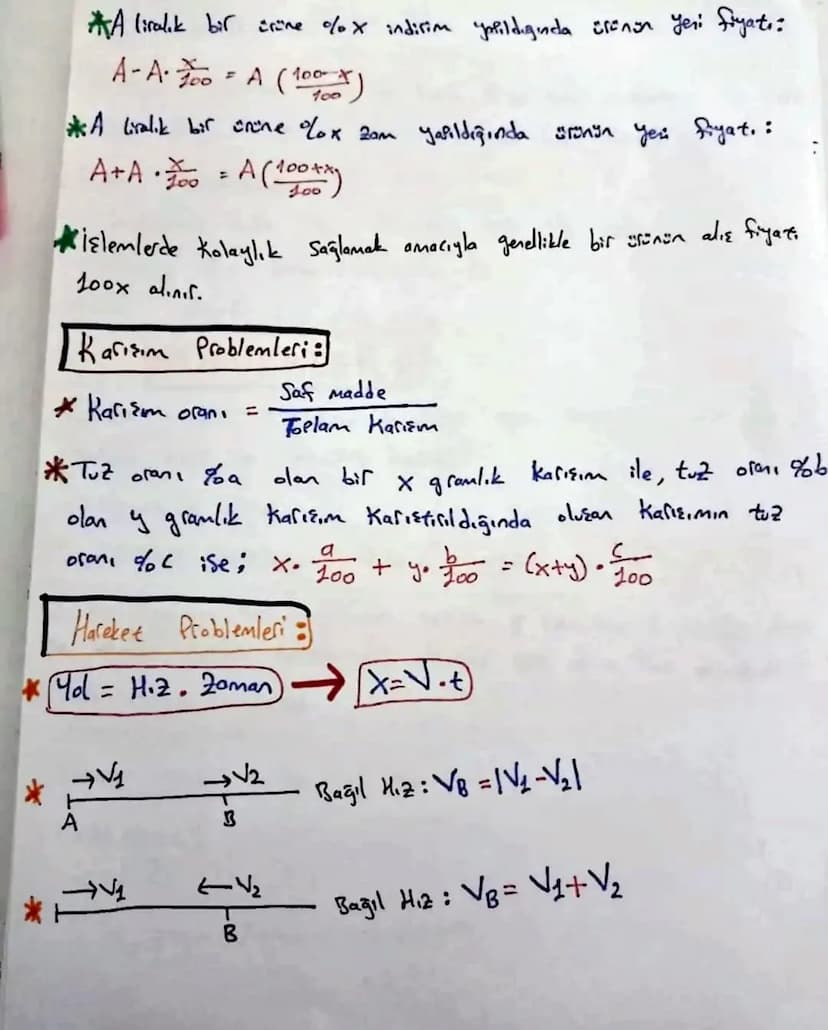 *A liralık bir ürüne %x indirim yapıldığında ürünün yeni fiyatı:
A-A·x/100 = A(100-x/100)
*A liralık bir ürüne %x zam yapıldığında ürünün yeni fiyatı:
A+A·x/100 = A(100+x/100)
*işlemlerde kolaylık sağlamak amacıyla genellikle bir ürünün alış fiyatı
100x alınır.
Karışım Problemleri:
* Karışım oranı = Saf madde / Toplam Karışım
*Tuz oranı %a olan bir x gramlık karışım ile, tuz oranı %b
olan y gramlık karışım karıştırıldığında oluşan karışımın tuz
oranı %c ise; x·a/100 + y·b/100 = (x+y)·c/100
Hareket Problemleri:
* Yol = Hız . Zaman → X=V.t
* →V1 →V2 Bağıl Hız: VB =|V1-V2|
A B
* →V1 ←V2 Bağıl Hız: VB= V1+V2
B